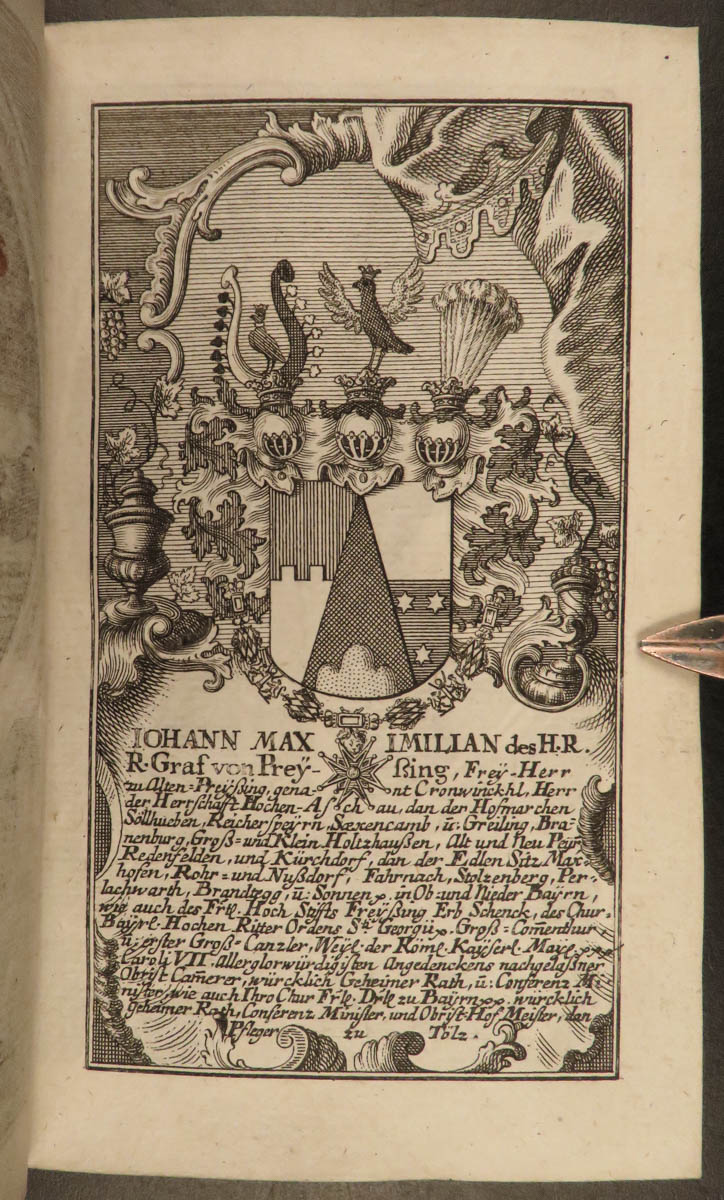 IOHANN MAX IMILIAN des H.R.
R. Graf von Preÿ- ßing, Freÿ-Herr
zu Alten-Preÿßing, gena- nt Cronwinckhl, Herr
der Herrschafft Hochen-Asch au, dan der Hofmarchen
Söllhueben, Reicherspeÿrn, Saxencamb, ù: Greiling, Bra-
nenburg, Groß= und Klein Holtzhaußen, Alt und Neu Peÿr
Redenfelden, und Kürchdorf, dan der Edlen Sitz Max-
hofen, Rohr= und Nußdorf, Fahrnach, Stolzenberg, Per-
lachwarth, Brandtegg, ù: Sonnen in Ob= und Nieder Baÿrn,
wie auch des Hoch Stiffts Freÿßing Erb Schenck, des Chur-
Baÿrl. Hochen Ritter Ordens Sti Georgii Groß= Comenthur
ù: erster Groß= Canzler, Weÿl. der Röml. Kaÿserl. Maÿe
Caroli VII. Allerglorwürdigisten Angedenckens nachgelaßner
Obrist Cam̃erer, würcklich Geheimer Rath, ù: Conferenz Mi-
nister, wie auch Ihro Chur zu Baÿrn würcklich
geheimer Rath, Conferenz Minister, und Obrist-Hof Meister, dan
Pfleger zu Tölz.